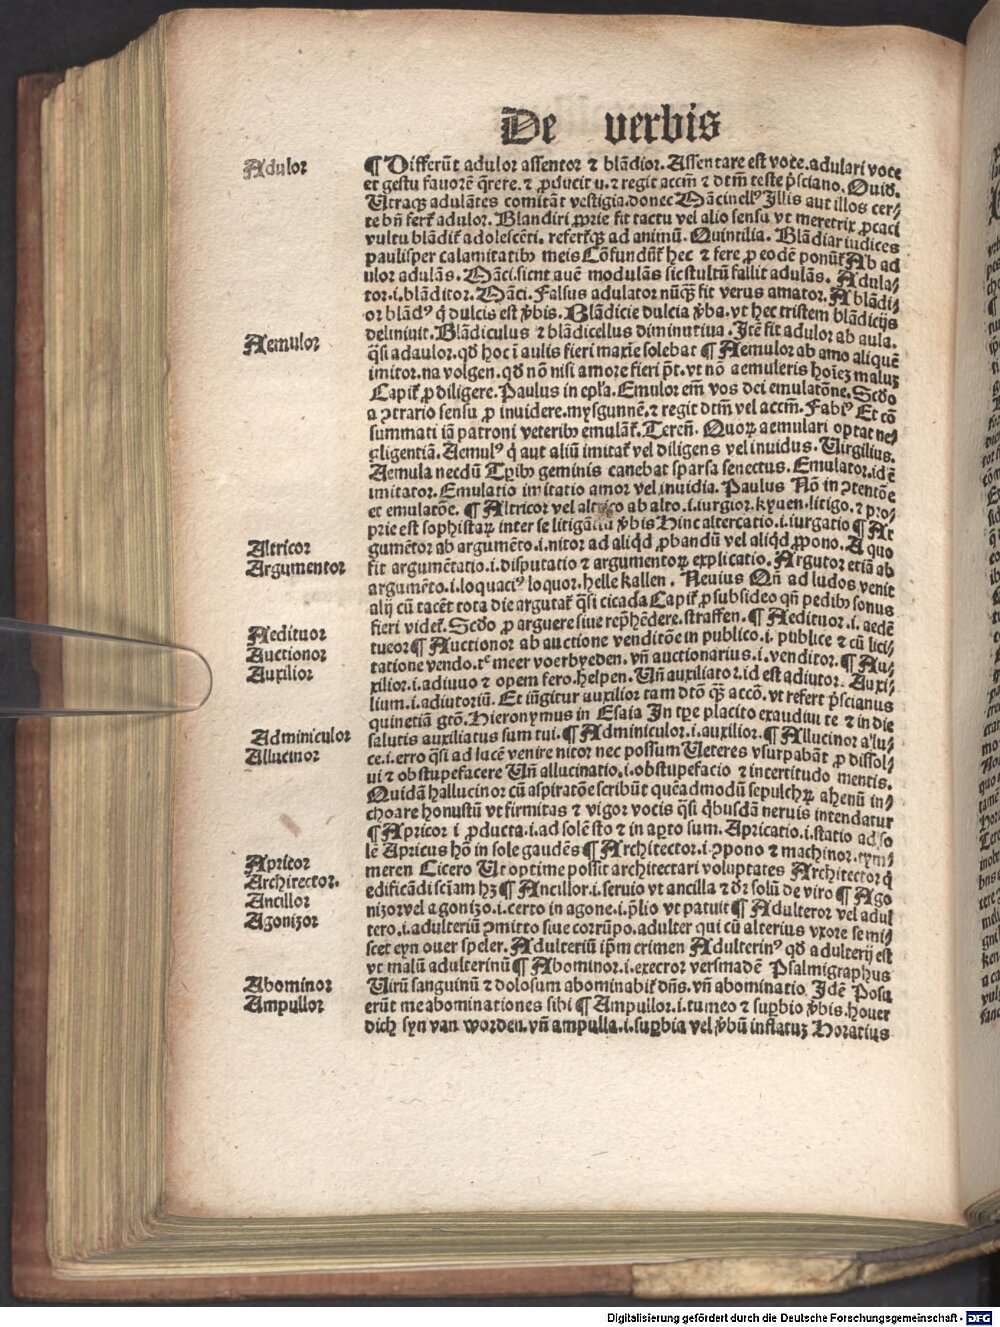 De verbis
Adulor
¶ Differūt adulor assentor ⁊ blādior. Assentare est voce. adulari voce
et gestu fauorē q̄rere. ⁊ ꝓducit u. ⁊ regit accm̄ ⁊ dtm̄ teste p̄sciano. Ouid.
Utraqꝫ adulātes comitāt vestigia. donec Mācinellꝰ Illis aut illos cer⸗
te bn̄ fert adulor. Blandiri ꝓprie fit tactu vel alio sensu vt meretrix ꝓcaci
vultu blādit̄ adolescēti. refert̄qꝫ ad animū. Quintilia. Blādiar iudices
paulisper calamitatibꝰ meis Cōfundūt̄ hec ⁊ fere ꝓ eodē ponūt̄ Ab ad
ulor adulās. Māci. sicut auē modulās sic stultū fallit adulās. Adula⸗
tor. i. blāditor. Māci. Falsus adulator nūqꝫ fit verus amator. A blādi⸗
or blādꝰ q̄ dulcis est v̄bis. Blādicie dulcia v̄ba. vt hec tristem blādicijs
deliniuit. Blādiculus ⁊ blādicellus diminutiua. Itē fit adulor ab aula.
Aemulor
q̄si adaulor. qd̄ hoc ī aulis fieri maxīe solebat ¶ Aemulor ab amo aliquē
imitor. na volgen. qd̄ nō nisi amore fieri p̄t. vt nō aemuleris hoīeꝫ maluꝫ
Capit̄ ꝓ diligere. Paulus in epl̄a. Emulor em̄ vos dei emulatōne. Scd̄o
a ↄtrario sensu ꝓ inuidere. mysgunnē. ⁊ regit dtm̄ vel accm̄. Fabiꝰ Et cō
summati iā patroni veteribꝰ emulāt̄. Teren̄. Quoꝝ aemulari optat ne⸗
gligentiā. Aemulꝰ q̄ aut aliū imitat̄ vel diligens vel inuidus. Uirgilius.
Aemula necdū Tp̄ibꝰ geminis canebat sparsa senectus. Emulator. idē
imitator. Emulatio imitatio amor vel inuidia. Paulus Nō in ↄtentōe
et emulatōe. ¶ Altricor vel altrico ab alto. i. iurgior. kyuen. litigo. ⁊ pro⸗
prie est sophistaꝝ inter se litigātiū v̄bis Hinc altercatio. i. iurgatio ¶ Ar
Altricor
gumētor ab argumēto. i. nitor ad aliqd̄ ꝓbandū vel aliqd̄ ꝓpono. A quo
Argumentor
fit argumētatio. i. disputatio ⁊ argumentoꝝ explicatio. Argutor etiā ab
argumēto. i. loquaciꝰ loquor. helle kallen. Neuius Qn̄ ad ludos venit
alij cū tacēt tota die argutat̄ q̄si cicada Capit̄ ꝓ subsideo qn̄ pedibꝰ sonus
fieri videt̄. Scd̄o ꝓ arguere siue rep̄hēdere. straffen. ¶ Aedituor. i. aedē
Aedituor
tueor ¶ Auctionor ab auctione venditōe in publico. i. publice ⁊ cū lici⸗
Auctionor
tatione vendo. tᵉ meer voerbyeden. vn̄ auctionarius. i. venditor. ¶ Au⸗
Auxilior
xilior. i. adiuuo ⁊ opem fero. helpen. Un̄ auxiliator. id est adiutor. Auxi⸗
lium. i. adiutoriū. Et iūgitur auxilior tam dtō qꝫ accō. vt refert p̄scianus
quinetiā gtō. Hieronymus in Esaia In tp̄e placito exaudiui te ⁊ in die
Adminiculor
salutis auxiliatus sum tui. ¶ Adminiculor. i. auxilior. ¶ Allucinor a lu⸗
Allucinor
ce. i. erro q̄si ad lucē venire nitor nec possum Ueteres vsurpabāt ꝓ dissol⸗
ui ⁊ obstupefacere Un̄ allucinatio. i. obstupefacio ⁊ incertitudo mentis.
Quidā hallucinor cū aspiratōe scribūt quēadmodū sepulchꝝ ahenū in⸗
choare honustū vt firmitas ⁊ vigor vocis q̄si q̄busdā neruis intendatur
¶ Apricor i ꝓducta. i. ad solē sto ⁊ in aꝑto sum. Apricatio. i. statio ad so
Apricor
lē Apricus hō in sole gaudēs ¶ Architector. i. ↄpono ⁊ machinor. tym⸗
meren Cicero Ut optime possit architectari voluptates Architector q̄
Architector.
edificādi sciam hꝫ ¶ Ancillor. i. seruio vt ancilla ⁊ dr̄ solū de viro ¶ Ago
Ancillor
nizor vel agonizo. i. certo in agone. i. p̄lio vt patuit ¶ Adulteror vel adul
Agonizor
tero. i. adulteriū ↄmitto siue corrūpo. adulter qui cū alterius vxore se mi⸗
scet eyn ouer speler. Adulteriū ip̄m crimen Adulterinꝰ qd̄ adulterij est
vt malū adulterinū ¶ Abominor. i. execror versmadē Psalmigraphus
Abominor
Uirū sanguinū ⁊ dolosum abominabit̄ dn̄s. vn̄ abominatio Idē Posu
Ampullor
erūt me abominationes sibi ¶ Ampullor. i. tumeo ⁊ suꝑbio v̄bis. houer
dich syn van worden. vn̄ ampulla. i. suꝑbia vel v̄bū inflatuꝫ Horatius
Digitalisierung gefördert durch die Deutsche Forschungsgemeinschaft - DFG